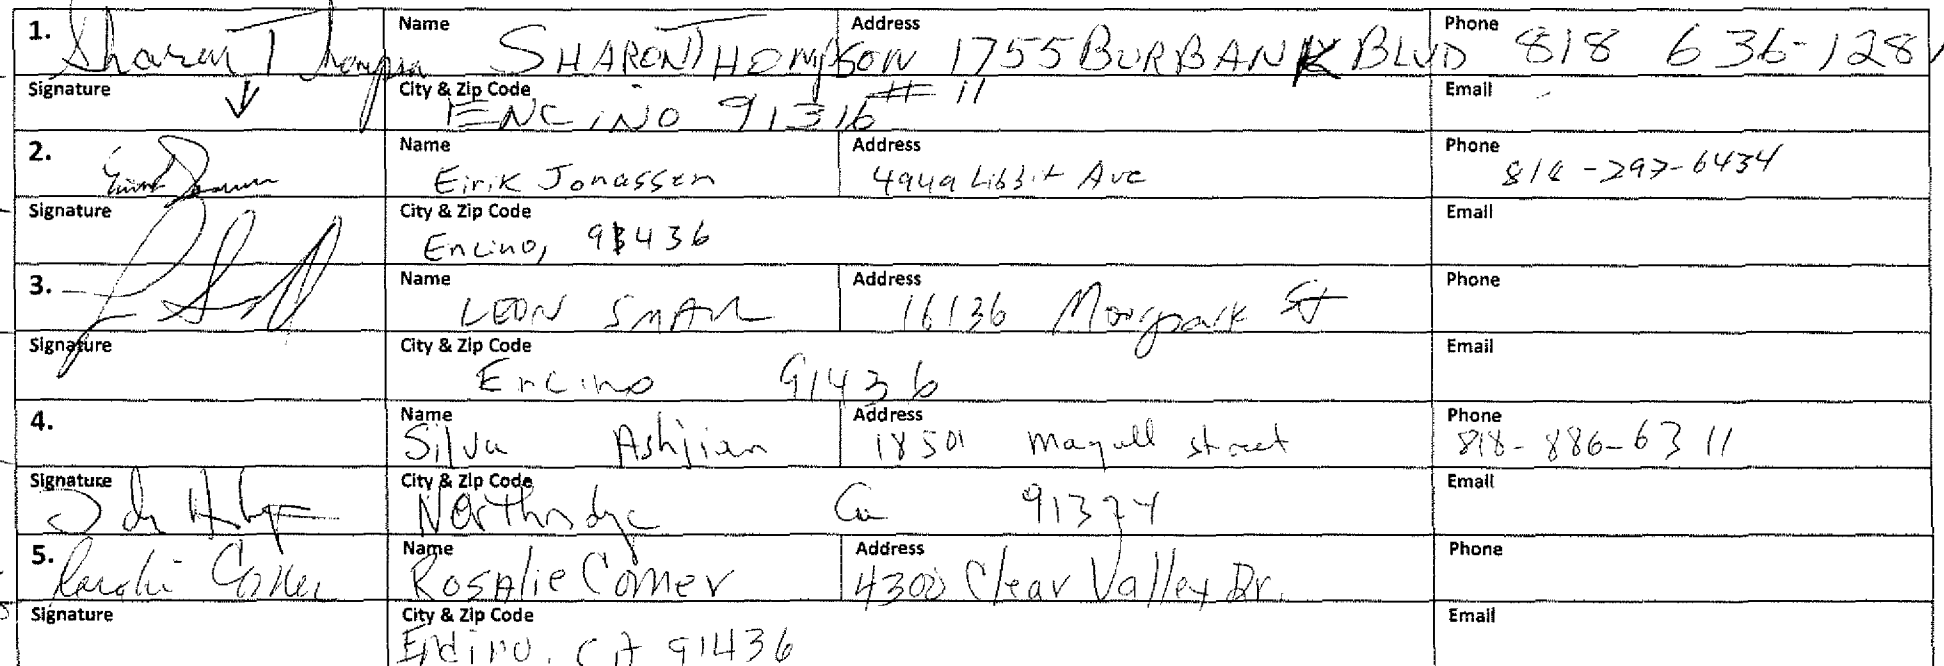 1. Sharon Thompson Name SHARON THOMPSON Address 1755 BURBANK BLVD Phone 818 636-1281
Signature City & Zip Code ENCINO 91316 # 11 Email
2. Name Eirik Jonassen Address 4949 Libbit Ave Phone 818-297-6434
Signature City & Zip Code Encino, 91436 Email
3. Name LEON SMALL Address 16136 Moorpark St Phone
Signature City & Zip Code Encino 91436 Email
4. Name Silva Ashjian Address 18501 Mayall street Phone 818-886-6311
Signature City & Zip Code Northridge Ca 91324 Email
5. Rosalie Comer Name Rosalie Comer Address 4300 Clear Valley Dr. Phone
Signature City & Zip Code Encino, CA 91436 Email